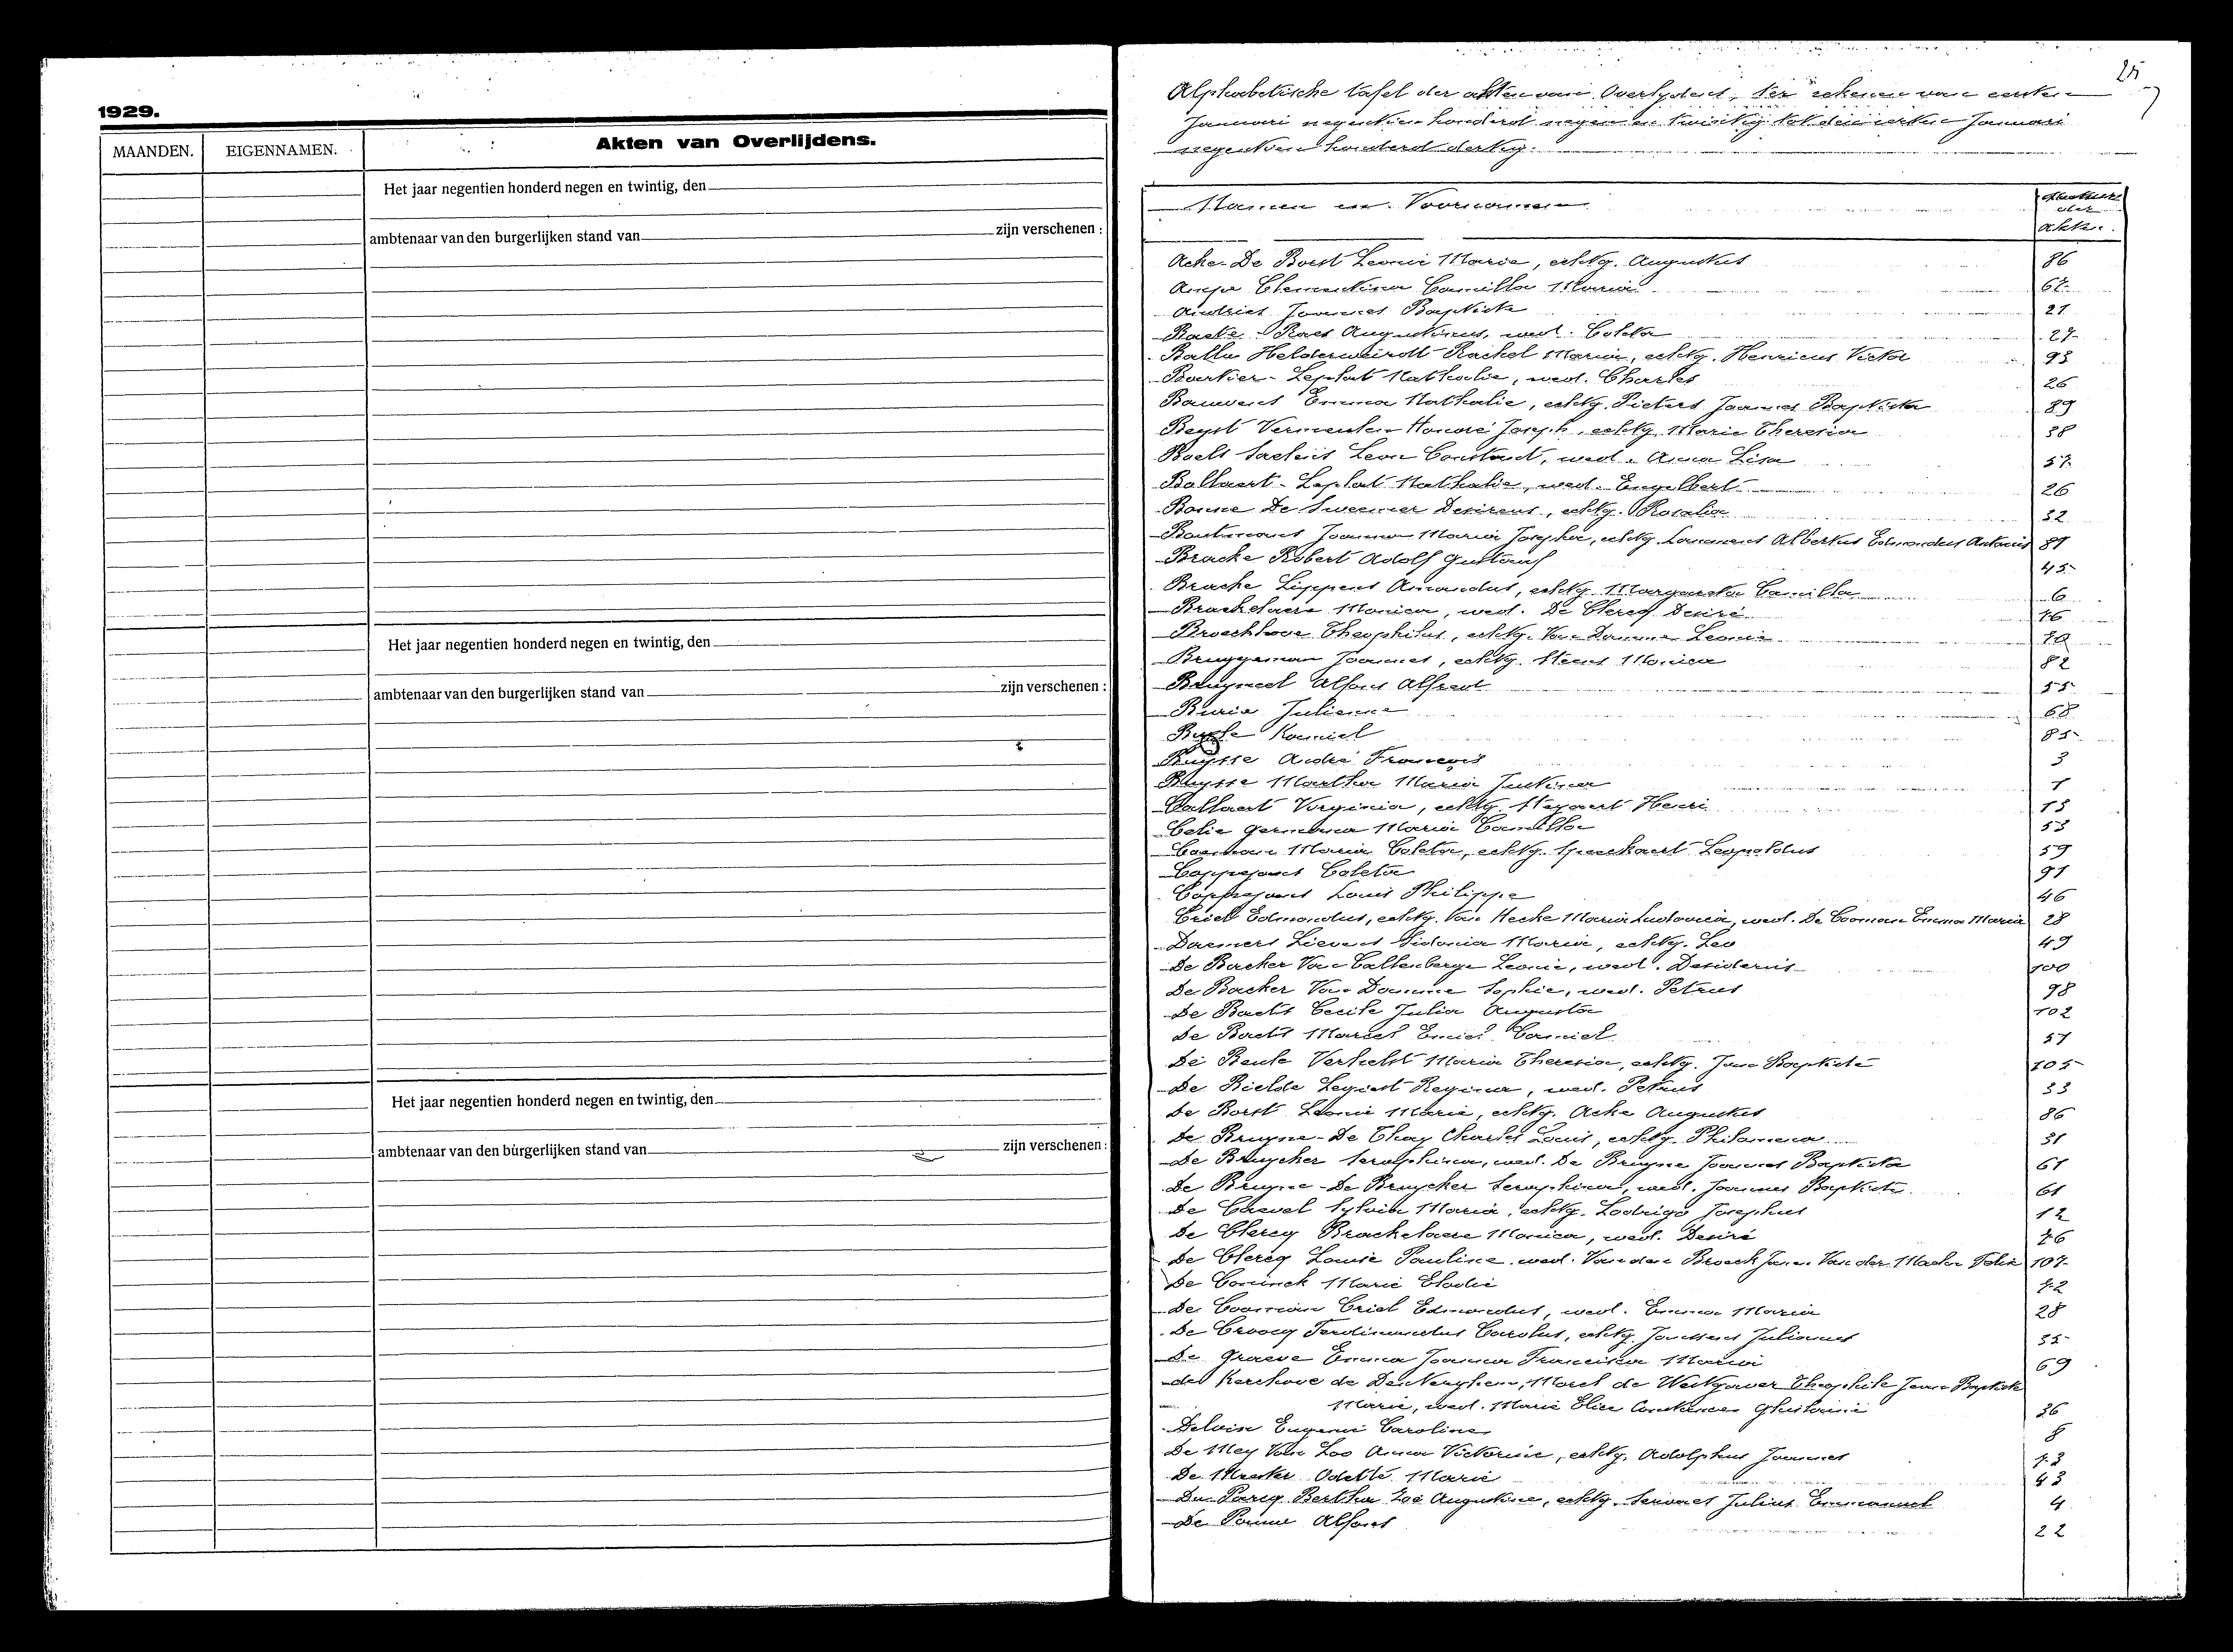 1929.
MAANDEN.
EIGENNAMEN.
Akten van Overlijdens.
Het jaar negentien honderd negen en twintig, den
ambtenaar van den burgerlijken stand van zijn verschenen :
Het jaar negentien honderd negen en twintig, den
ambtenaar van den burgerlijken stand van zijn verschenen :
Het jaar negentien honderd negen en twintig, den
ambtenaar van den burgerlijken stand van zijn verschenen :
25
Alphabetische tafel der akten van Overlydens, ter rekenen van eersten
Januari negentien honderd negen en twintig tot den eersten Januari
negentien honderd dertig.
Namen en Voornamen
Nummers der akten.
Acke-De Borst Leonie Marie, echtg. Augustus 86
Clementina Camilla Maria 67
Andries Joannes Baptiste 21
Baeke-Raes Augustinus, wed. Coleta 27
Ballu Helderweirdt Rachel Maria, echtg. Henricus Victor 93
Leplat Nathalie, wed. Charles 26
Bauwens Emma Nathalie, echtg. Pieters Joannes Baptista 89
Beyst Vermeulen Honoré Joseph, echtg. Marie Theresia 38
Boels Leon Constant, wed. Anna Lisa 57
Bollaert-Leplat Nathalie, wed. Engelbert 26
Bonne De Sweemer Desireus, echtg. Rosalia 32
Joanna Maria Josepha, echtg. Lammens Albertus Edmondus Antonius 81
Bracke Robert Adolf Gustaaf 45
Bracke Lippens Amandus, echtg. Margareta Camilla 6
Brackelaere Monica, wed. De Clercq Desiré 76
Broeckhove Theophilus, echtg. Van Damme Leonie
Bruggeman Joannes, echtg. Steens Monica 82
Bruyneel Alfons Alfred 55
Burie Julienne 68
Buyse Kamiel 85
Buysse André François 3
Buysse Martha Maria Justina 1
Callaert Virginia, echtg. Steyaert Henri 13
Celie Germana Maria Camilla 53
Coeman Maria Coleta, echtg. Speeckaert Leopoldus 59
Coppejans Coleta 91
Coppejans Louis Philippe 46
Criel Edmondus, echtg. Van Hecke Maria Ludovica, wed. De Cooman Emma Maria 28
Daemers Lievens Sidonia Maria, echtg. Leo 49
De Backer Van Caltenberge Leonie, wed. Desiderius 100
De Backer Van Damme Sophie, wed. Petrus 98
De Baets Cecile Julia Augusta 102
De Baets Marcel Emiel Camiel 51
De Beule Verhelst Maria Theresia, echtg. Jean Baptiste 105
De Bielde Legiest Regina, wed. Petrus 33
De Borst Leonie Marie, echtg. Acke Augustus 86
De Bruyne-De Thay Charles Louis, echtg. Philomena 31
De Bruycker Seraphina, wed. De Bruyne Joannes Baptista 61
De Bruyne-De Bruycker Seraphina, wed. Joannes Baptista 61
De Caevel Sylvia Maria, echtg. Lodrigo Josephus 12
De Clercq Brackelaere Monica, wed. Desiré 76
De Clercq Louise Pauline, wed. Van den Broeck Jan. Van der Felix 107
De Coninck Marie Elodie 72
De Cooman Criel Edmondus, wed. Emma Maria 28
De Croocq Ferdinandus Carolus, echtg. Janssens Julianus 35
De Graeve Emma Joanna Francisca Maria 69
de Kerchove de Denterghem, Morel de Westgaver Theophile Jean Baptiste
Marie, wed. Marie Elise Constance Ghislaine 36
Delvin Eugenie Caroline 8
De Mey Van Loo Anna Victorine, echtg. Adolphus Joannes 73
De Meester Odette Marie 43
Du Parcq Bertha Zoé Augustine, echtg. Servaes Julius Emmanuel 4
De Pauw Alfons 22